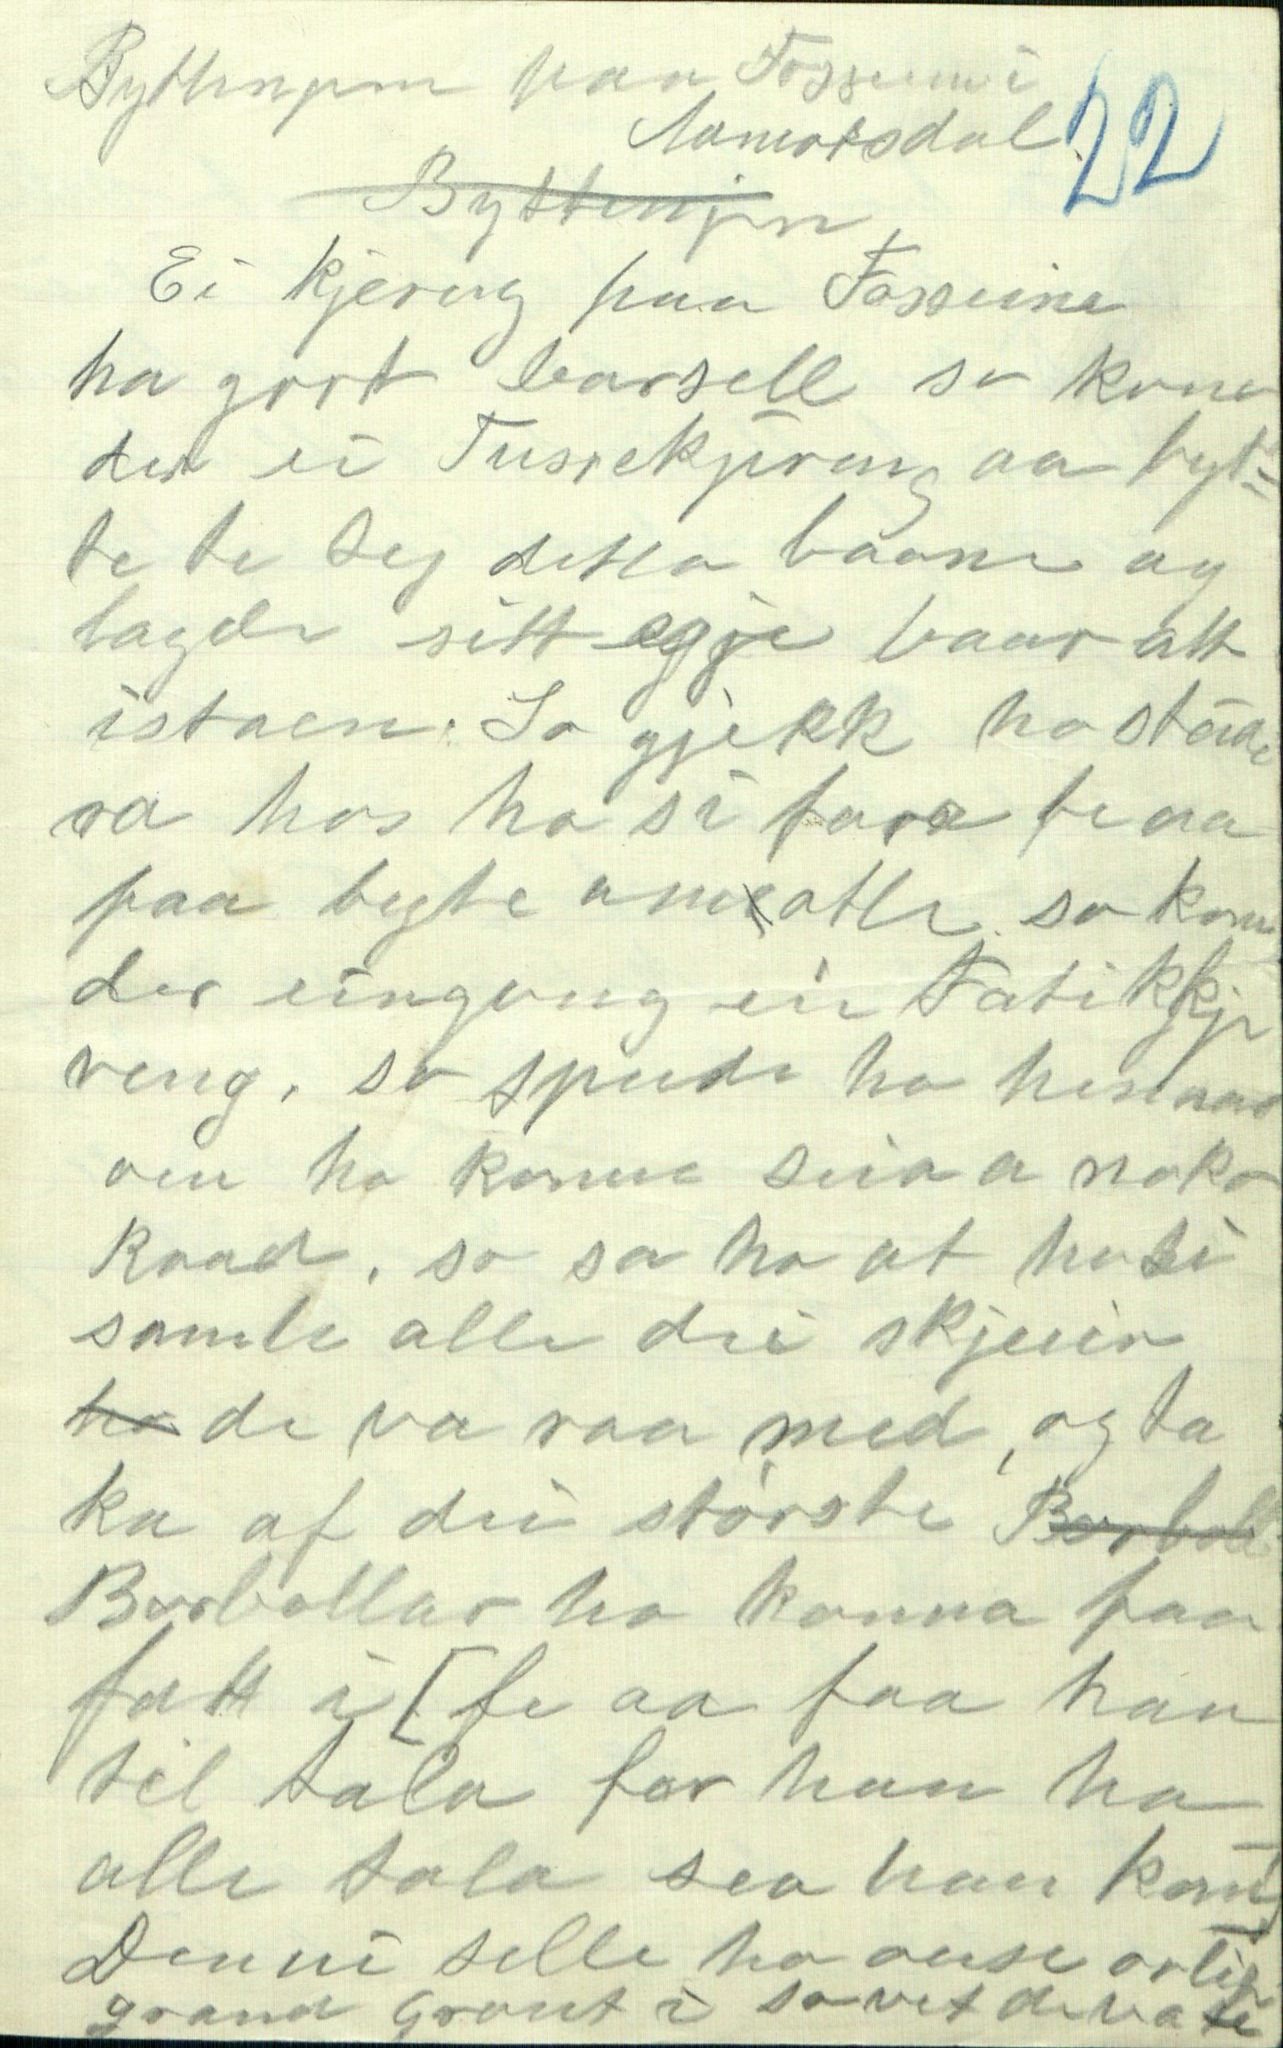 Byttingen paa Fosseum i
Aamotsdal.
22
Byttingen
Ei kjerring paa Fosseime
ha gort barsell so kom
der ei Tussekjæring aa byt=
te te seg detta baane og
lagde sitt egje baar att
istaen. So gjekk ho støde
ra hos ho si fara te aa
paa bygte om alle so kom
der eingong ei Fatikkjæ
reng, so spude ho henar
om ho konne seia a noko
Raad, so sa ho at ho si
samle alle dei skjeier
ho de va raa med, og ta
ka af dei største Borboll
Borbollar ho konna faa
fatt i [fe aa faa han
til tala for han ha
alle tala sea han kom]
Denni selle ho ause orlit
grand Graut i so vet de va te